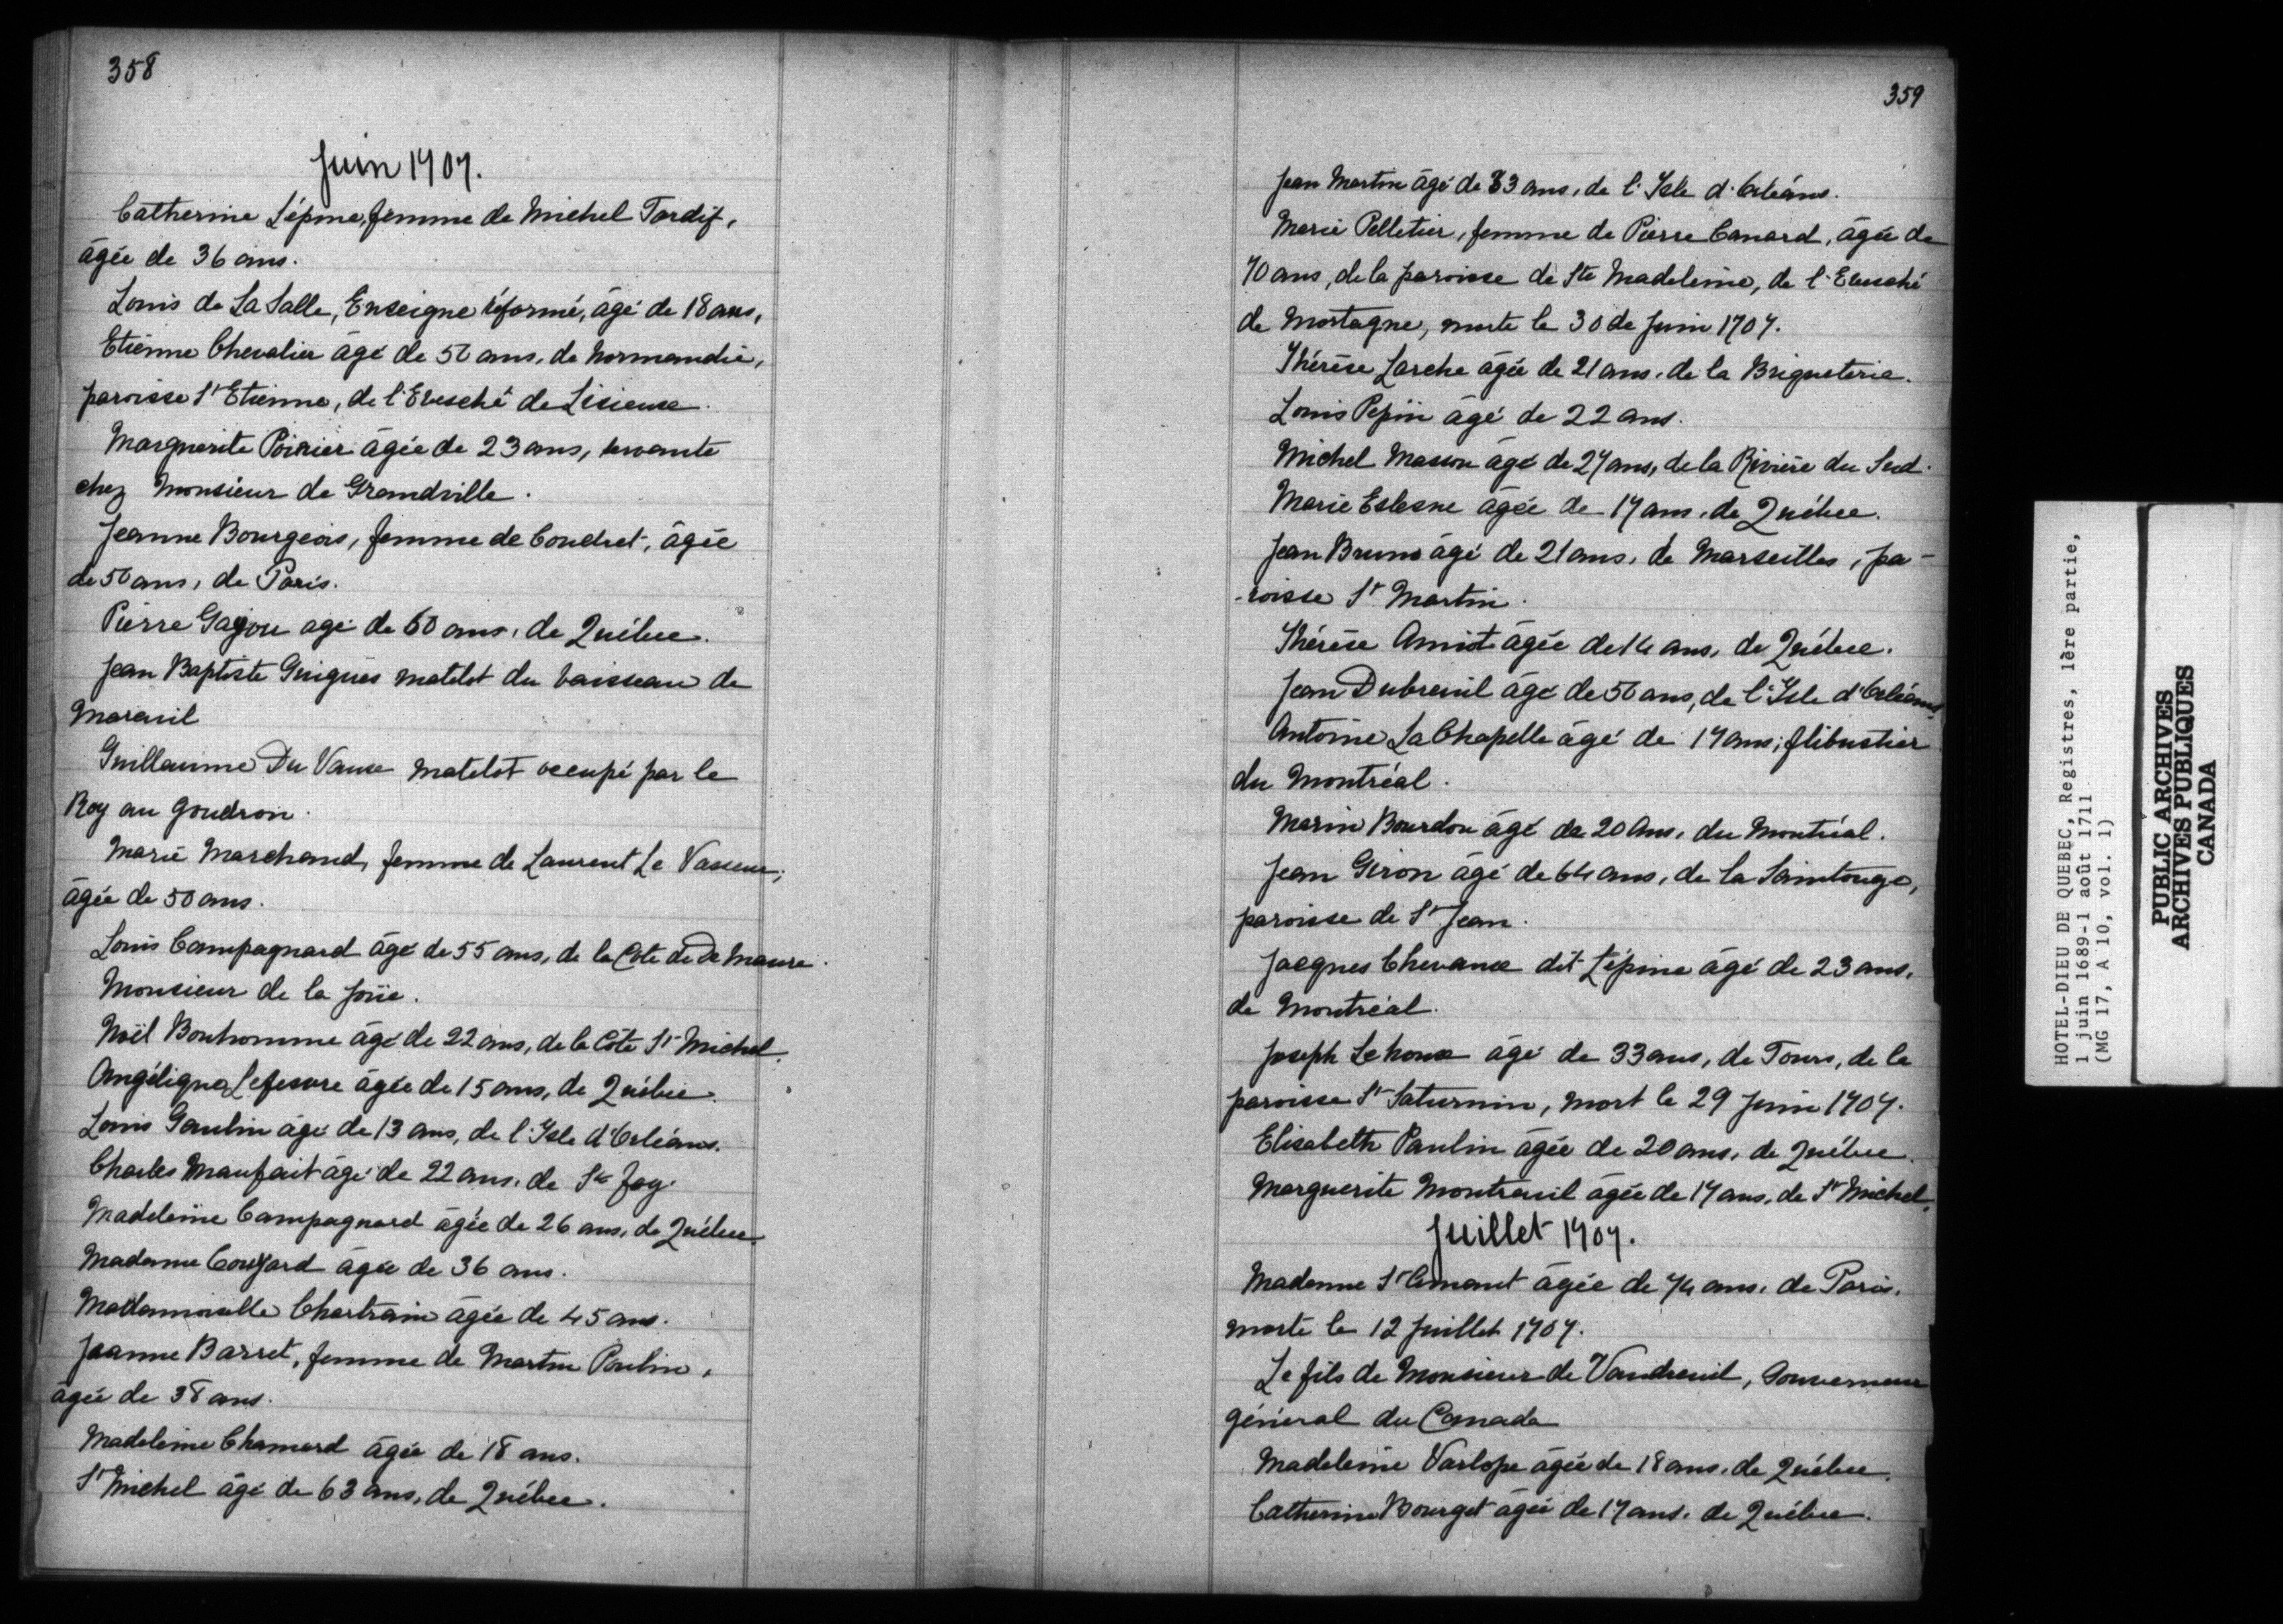 358
Juin 1707.
Catherine Lépine, femme de Michel Tardif,
âgée de 36 ans.
Louis de La Salle, Enseigne réformé, âgé de 18 ans,
Etienne Chevalier âgé de 50 ans, de Normandie,
paroisse St Etienne, de l'Evesché de Lisieux.
Marguerite Poirier âgée de 23 ans, servante
chez Monsieur de Grandville.
Jeanne Bourgeois, femme de Coudret, âgée
de 50 ans, de Paris.
Pierre Gajou agé de 60 ans, de Québec.
Jean Baptiste Guigues matelot du vaisseau de
Mareuil
Guillaume Du Vaux matelot occupé par le
Roy au goudron.
Marie Marchand, femme de Laurent Le Vasseur,
âgée de 50 ans.
Louis Campagnard âgé de 55 ans, de la Côte de De Maure.
Monsieur de la Joüe.
Noël Bonhomme âgé de 22 ans, de la Côte St Michel.
Angélique Lefesvre âgée de 15 ans, de Québec.
Louis Gaulin âgé de 13 ans, de l'Isle d'Orléans.
Charles Maufait âgé de 22 ans, de Ste Foy.
Madeleine Campagnard âgée de 26 ans, de Québec.
Madame Couyard âgée de 36 ans.
Mademoiselle Chartrain âgée de 45 ans.
Jeanne Barret, femme de Martin Poulin,
âgée de 38 ans.
Madeleine Chamard âgée de 18 ans.
St Michel âgé de 63 ans, de Québec.
359
Jean Martin âgé de 83 ans, de l'Isle d'Orléans.
Marie Pelletier, femme de Pierre Canard, âgée de
70 ans, de la paroisse de Ste Madeleine, de l'Evesché
de Mortagne, morte le 30 de Juin 1707.
Thérèse Larche âgée de 21 ans, de la Briqueterie.
Louis Pepin âgé de 22 ans.
Michel Masson âgé de 27 ans, de la Rivière du Sud.
Marie âgée de 17 ans, de Québec.
Jean Bruno âgé de 21 ans, de Marseilles, pa-
-roisse St Martin.
Thérèse Amiot âgée de 14 ans, de Québec.
Jean Dubreuil âgé de 50 ans, de l'Isle d'Orléans.
Antoine La Chapelle âgé de 17 ans, flibustier
du Montréal.
Marin Bourdon âgé de 20 Ans, du Montréal.
Jean Giron âgé de 64 ans, de la Saintonge,
paroisse de St Jean.
Jacques Chevaux dit Lépine âgé de 23 ans,
de Montréal.
Joseph Lehoux âgé de 33 ans, de Tours, de la
paroisse St Saturnin, mort le 29 Juin 1707.
Elisabeth Paulin âgée de 20 ans, de Québec.
Marguerite Montreuil âgée de 17 ans, de St Michel.
Juillet 1707.
Madame St Amant âgée de 74 ans, de Paris,
morte le 12 Juillet 1707.
Le fils de Monsieur de Vaudreuil, Gouverneur
général du Canada
Madeleine Varlope âgée de 18 ans, de Québec.
Catherine Bourget âgée de 17 ans, de Québec.
HOTEL-DIEU DE QUEBEC, Registres, 1ère partie,
1 juin 1689-1 août 1711
(MG 17, A 10, vol. 1)
PUBLIC ARCHIVES
ARCHIVES PUBLIQUES
CANADA